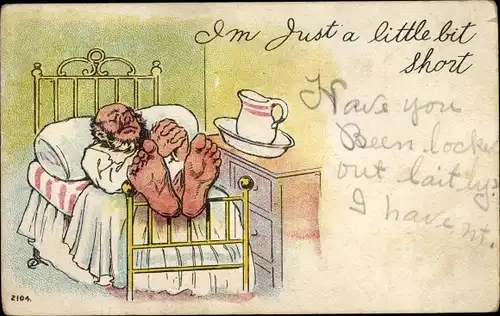 I'm Just a little bit
short
Have you
Been locke
out laitly?
I havent.
2104.